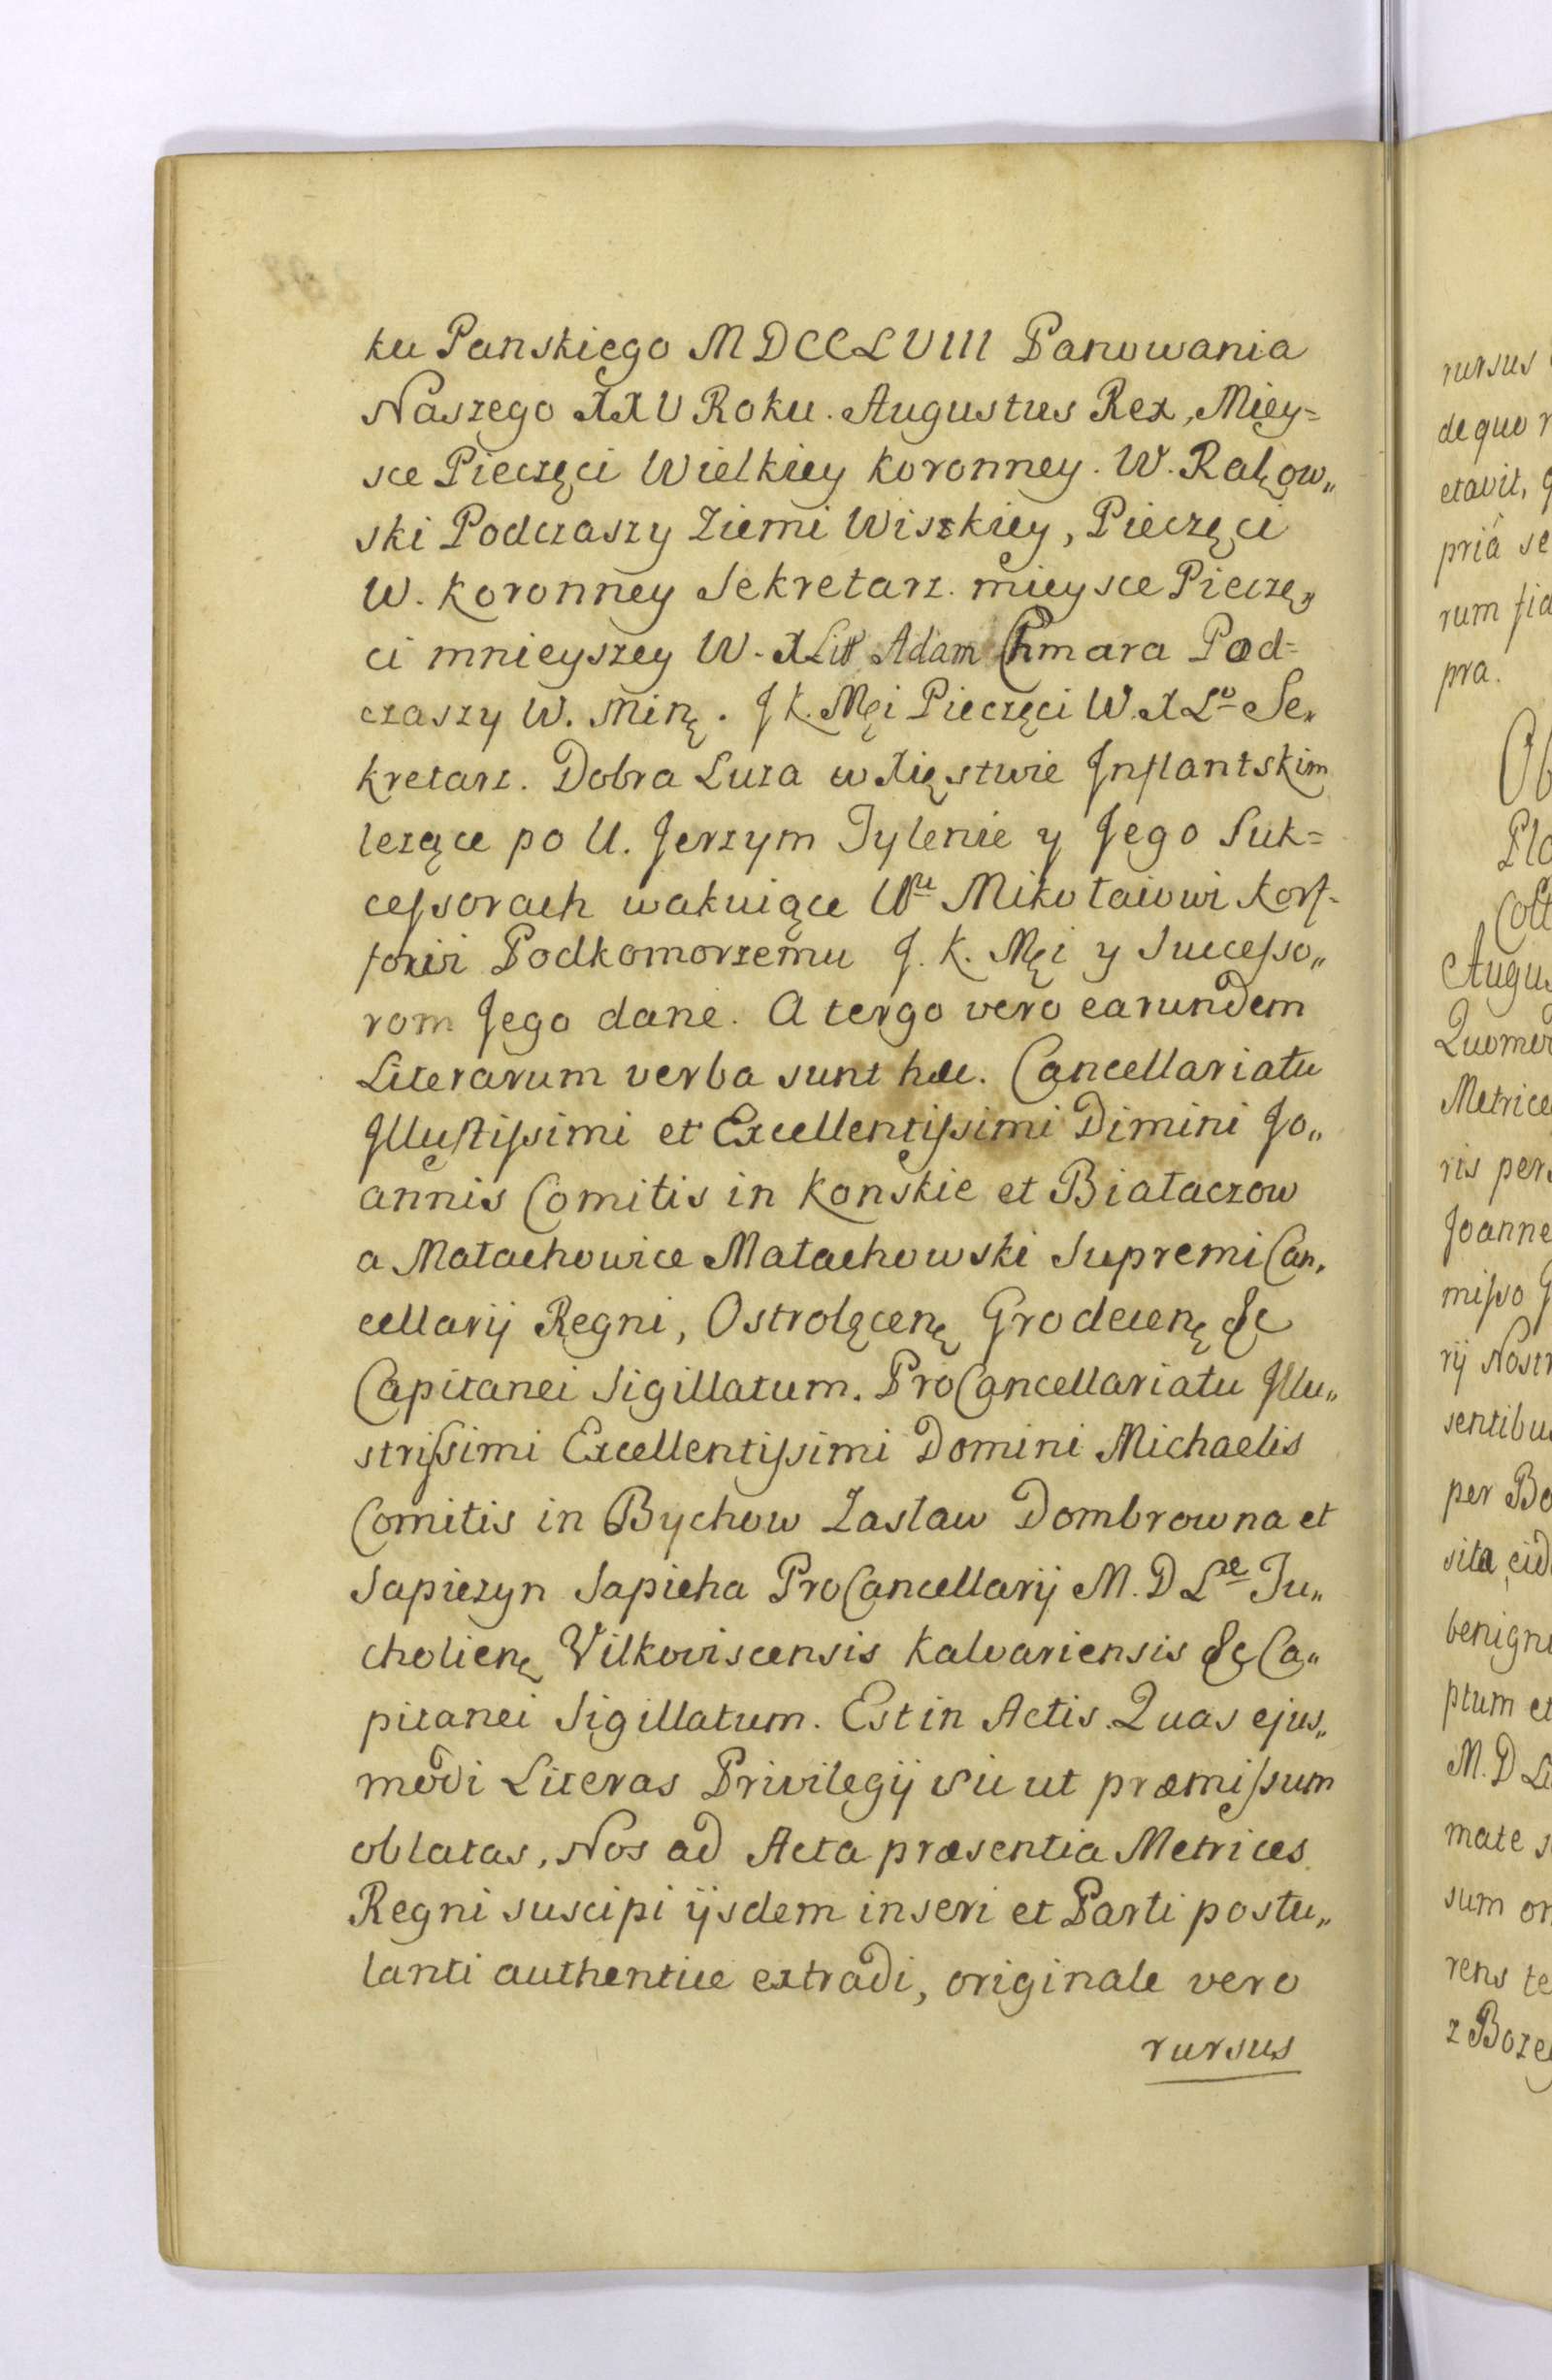 ku Panskiego MDCCLVIII Panowania
Naszego XXV Roku. Augustus Rex, Miey=
sce Pieczęci Wielkiey Koronney. W. Rałęow„
ski Podczaszy Ziemi Wiszkiey, Pieczęci
W. Koronney Sekretarz. mieysce Pieczę„
ci mnieyszey W. X Litt Adam Chmara Pod=
czaszy W. Minę. J K. Męi Pieczęci W. X Lo Se„
kretarz. Dobra Luza w Xięstwie Jnflantskim
lezące po U. Jerzym Tylenie y Jego Suk=
cessorach wakuiące Uu Mikołaiowi Korf-
fowi Podkomorzemu J. K. Męi y Successo„
rom Jego dane. A tergo vero earundem
Literarum verba sunt hæc. Cancellariatu
Jllustissimi et Excellentissimi Dimini Jo„
annis Comitis in Konskie et Białaczow
a Małachowice Małachowski Supremi Can„
cellarij Regni, Ostrolęcenę Grodecenę &c
Capitanei Sigillatum. ProCancellariatu Jllu„
strissimi Excellentissimi Domini Michaelis
Comitis in Bychow Zaslaw Dombrowna et
Sapiezyn Sapieha ProCancellarij M. D Lae Tu„
cholienę Vilkoviscensis Kalvariensis &c Ca„
pitanei Sigillatum. Est in Actis. Quas ejus„
modi Literas Privilegij sic ut præmissum
oblatas, Nos ad Acta præsentia Metrices
Regni suscipi ijsdem inseri et Parti postu„
lanti authentice extradi, originale vero
rursus
rursus
de quo r
etavit, q
priâ se
rum fid
pra.
Ob
Plo
Coll
Augus
Quomod
Metrice
ris per
Joanne
misso J
rij Nostr
sentibus
per Bo
sita eid
benigne
ptum et
M. D Li
mate s
sum or
rens te
z Boze